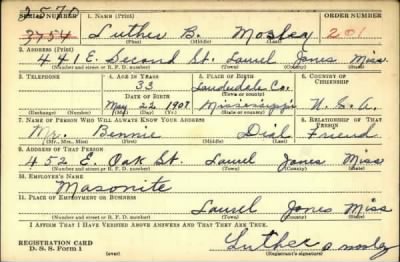 2570
SERIAL NUMBER 1. NAME (Print) ORDER NUMBER
3754 Luther B. Mosley 201
(First) (Middle) (Last)
2. ADDRESS (Print)
441 E. Second St. Laurel Jones Miss.
(Number and street or R. F. D. number) (Town) (County) (State)
3. TELEPHONE 4. AGE IN YEARS 5. PLACE OF BIRTH 6. COUNTRY OF CITIZENSHIP
33 Lauderdale Co.
DATE OF BIRTH (Town or county)
May 22 1907 Mississippi U.S.A.
(Exchange) (Number) (Mo.) (Day) (Yr.) (State or country)
7. NAME OF PERSON WHO WILL ALWAYS KNOW YOUR ADDRESS 8. RELATIONSHIP OF THAT PERSON
Mr. Bennie Dial Friend
(Mr., Mrs., Miss) (First) (Middle) (Last)
9. ADDRESS OF THAT PERSON
452 E. Oak St. Laurel Jones Miss
(Number and street or R. F. D. number) (Town) (County) (State)
10. EMPLOYER'S NAME
Masonite
11. PLACE OF EMPLOYMENT OR BUSINESS
Laurel Jones Miss
(Number and street or R. F. D. number) (Town) (County) (State)
I AFFIRM THAT I HAVE VERIFIED ABOVE ANSWERS AND THAT THEY ARE TRUE.
REGISTRATION CARD
D. S. S. Form 1 (over) Luther B Mosley
(Registrant's signature)